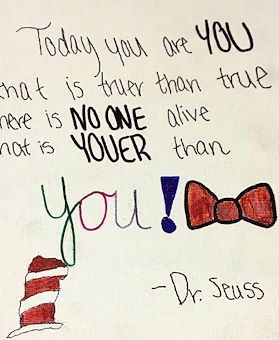 Today you are YOU
that is truer than true
here is NO ONE alive
hat is YOUER than
you!
-Dr. Seuss